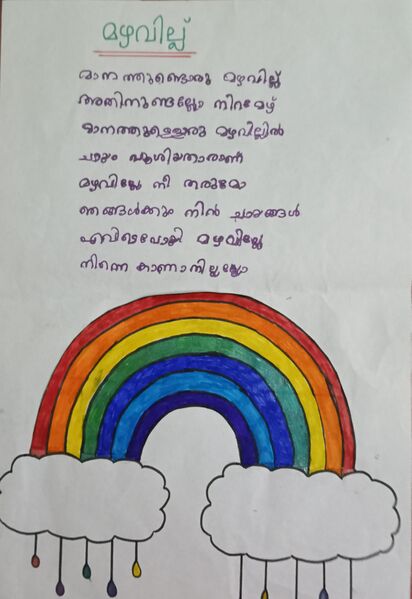 മഴവില്ല്
മാനത്തുണ്ടൊരു മഴവില്ല്
അതിനുണ്ടല്ലോ നിറമേഴ്
മാനത്തുള്ളൊരു മഴവില്ലിൽ
ചായം പൂശിയതാരാണ്
മഴവില്ലേ നീ തരുമോ
ഞങ്ങൾക്കും നിൻ ചായങ്ങൾ
എവിടെപോയി മഴവില്ലേ
നിന്നെ കാണാനില്ലല്ലോ